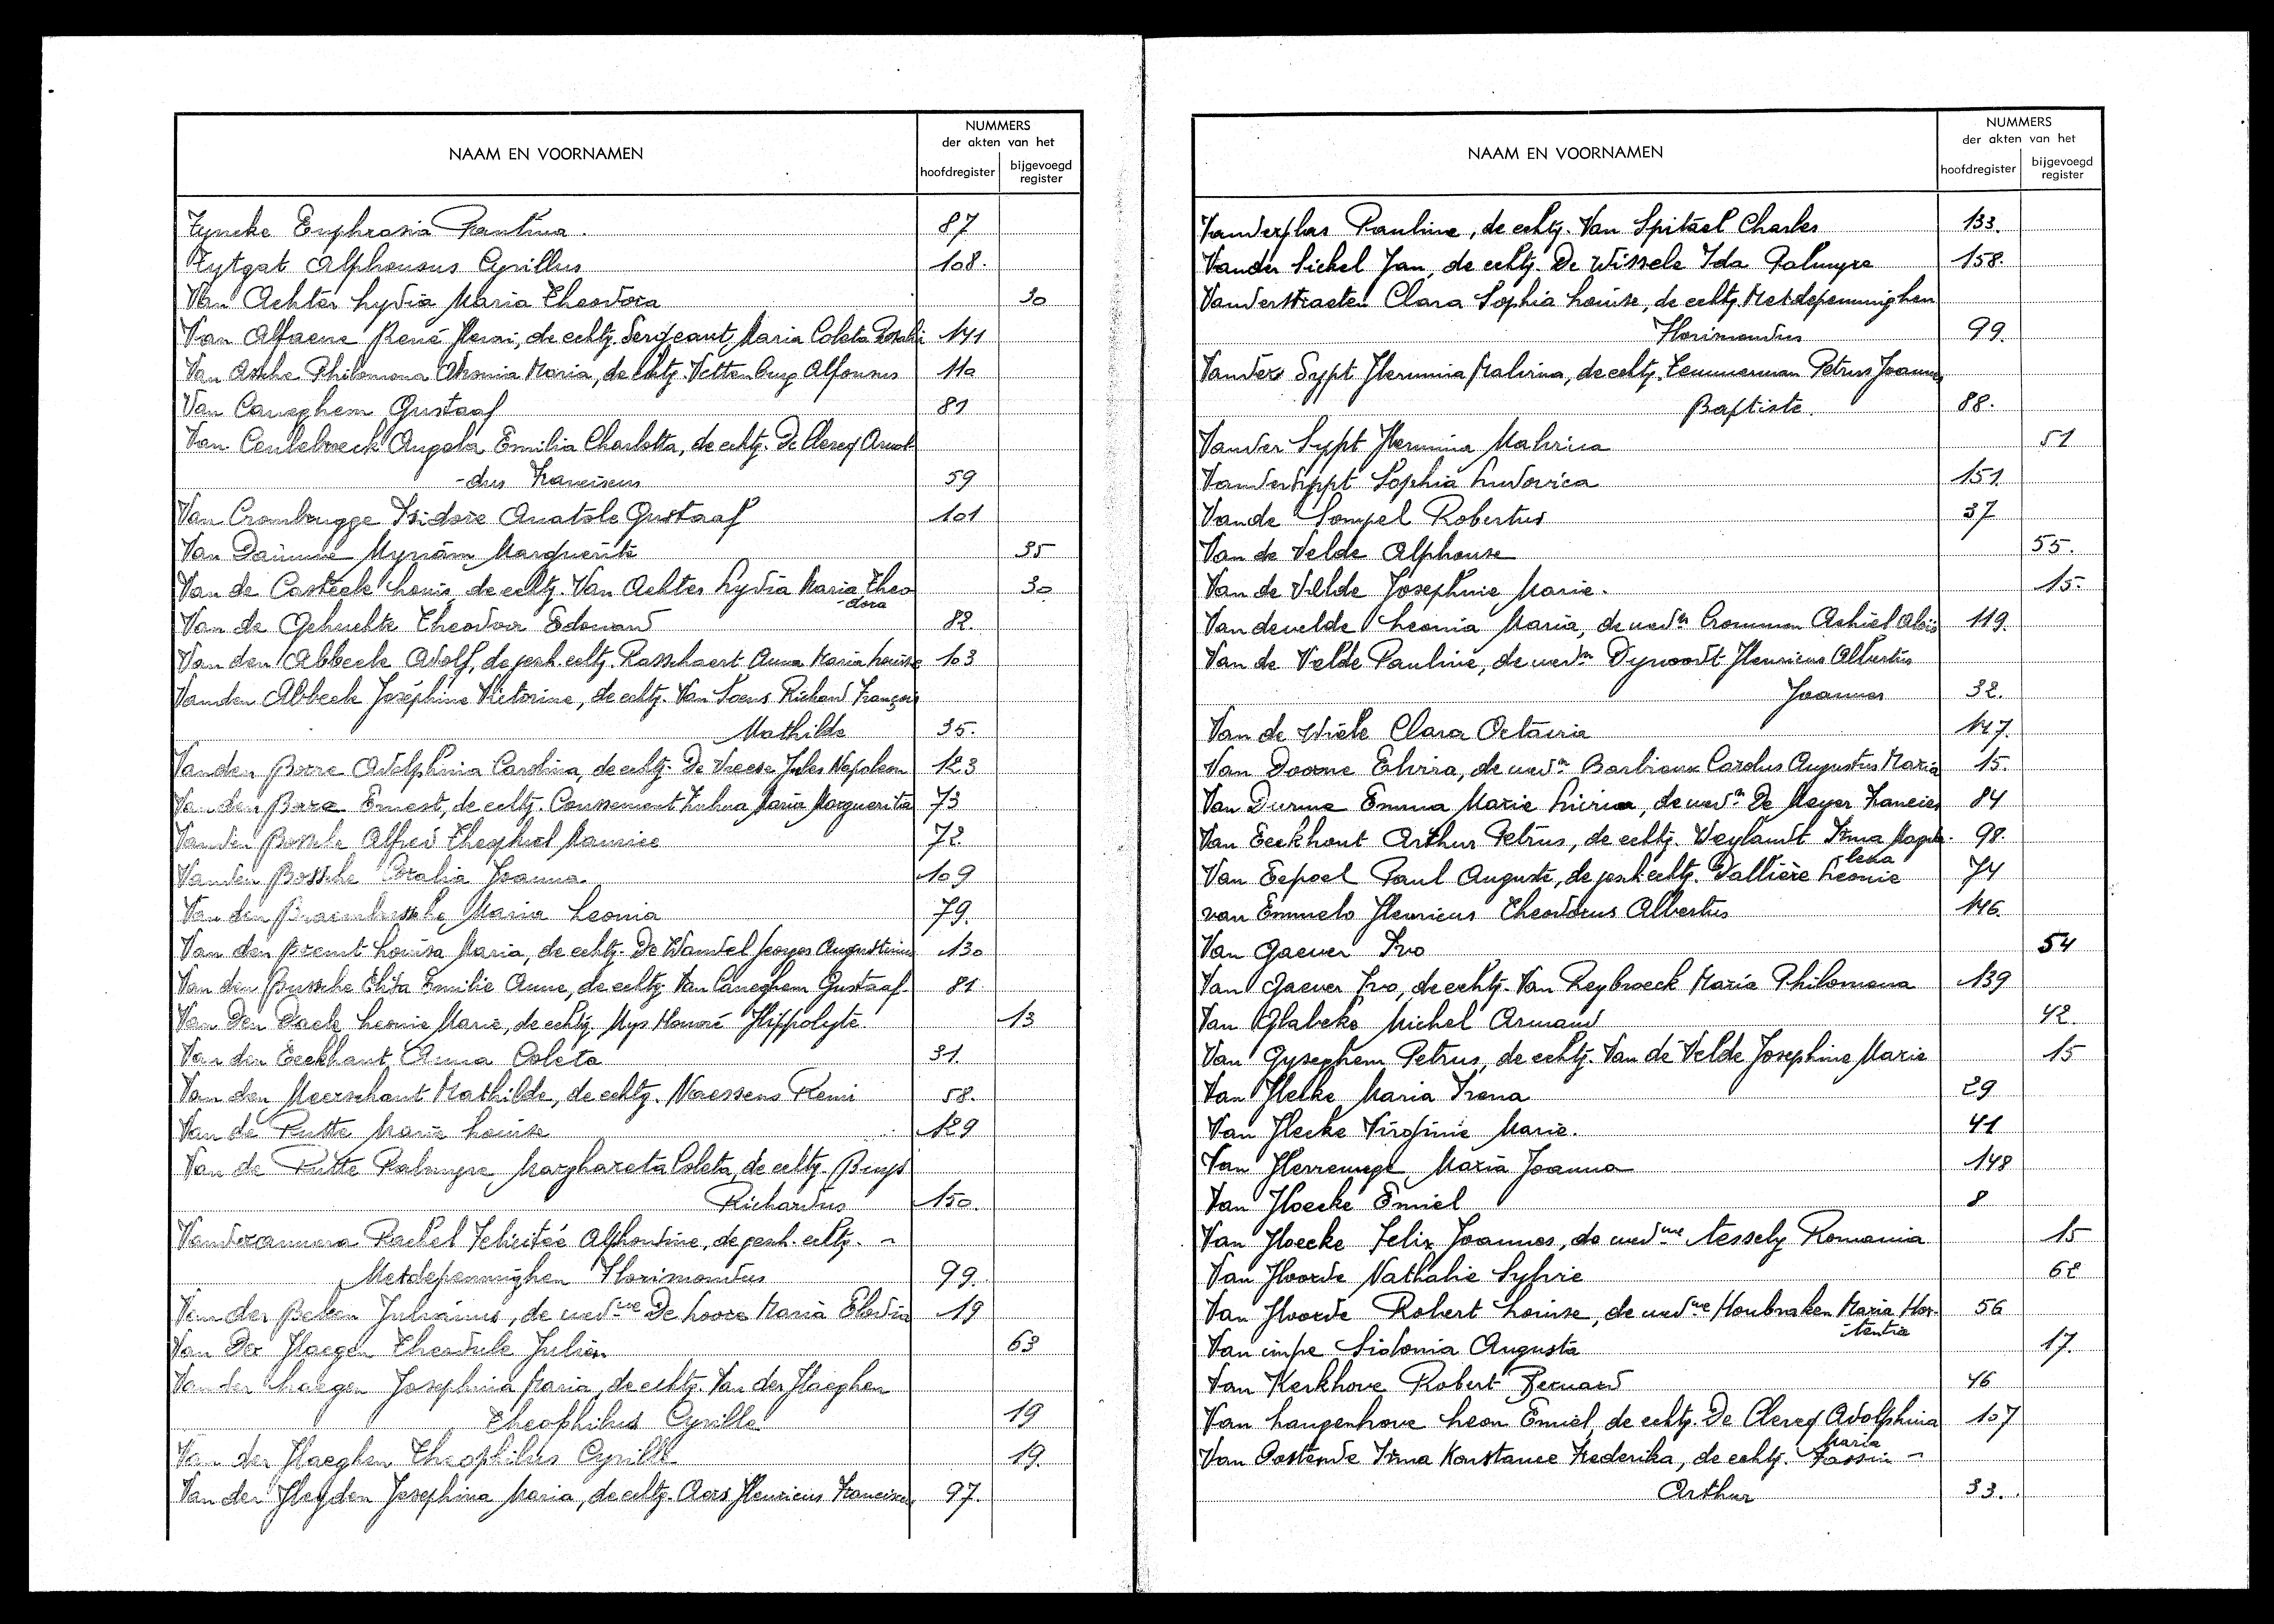 NAAM EN VOORNAMEN
NUMMERS
der akten van het
hoofdregister
bijgevoegd register
Tyncke Euphrasia Paulina. 87
Tytgat Alphonsus Cyrillus 108.
Van Achter Lydia Maria Theodora 30
Van Alfaene René Henri, de echtg. Sergeant Maria Coleta Rosalie 141
Van Assche Philomena Maria, de echtg. Vettenburg Alfonsus 110
Van Caneghem Gustaaf 81
Van Ceulebroeck Angela Emilia Charlotta, de echtg. De Clercq Arnol-
-dus Franciscus 59
Van Crombrugge Isidore Anatole Gustaaf 101
Van Damme Myriam Marguerite 35
Van de Casteele Louis, de echtg. Van Achter Lydia Maria Theo 30
-dora
Van de Gehuchte Theodoor Edouard 82.
Van den Abbeele Adolf, de gesch. echtg. Rasschaert Anna Maria Louise 103
Vanden Abbeele Joséphine Victorine, de echtg. Van Soens Richard François
Mathilde 35.
Vanden Borre Adolphina Carolina, de echtg. De Vreese Jules Napoleon 123
Van den Borre Ernest, de echtg. Coussement Maria Margueritta 73
Vanden Bossche Alfred Theophiel Maurice 72.
Vanden Bossche Coralia Joanna 109
Van den Braembussche Maria Leonia 79.
Van den Bremt Louisa Maria, de echtg. De Wandel Georges Augustinus 130
Van den Bussche Elisa Emilie Anne, de echtg. Van Caneghem Gustaaf. 81
Van Den Daele Leonie Marie, de echtg. Mys Honoré Hippolyte. 13
Van den Eeckhaut Anna Coleta 31.
Van den Meerschaut Mathilde, de echtg. Naessens Remi 58.
Van de Putte Marie Louise 129
Van de Putte Palmyre Marghareta Coleta, de echtg. Buys
Richardus 150.
Vanderammera Rachel Felicitée Alphonsine, de gesch. echtg. -
Metdepenninghen Florimondus 99.
Van der Beken Julianus, de wedue De Loore Maria Elodia 19
Van Der Haegen Theodule Julien 63
Van der Haegen Josephina Maria, de echtg. Van der Haeghen
Theophilus Cyrille 19
Van der Haeghen Theophilus Cyrille 19.
Van der Heyden Josephina Maria, de echtg. Aers Henricus Franciscus 97.
NAAM EN VOORNAMEN
NUMMERS
der akten van het
hoofdregister
bijgevoegd register
Vanderplas Pauline, de echtg. Van Spitael Charles 133.
Vander Sickel Jan, de echtg. De Wissele Ida Palmyre 158.
Vanderstraeten Clara Sophia Louise, de echtg. Metdepenninghen
Florimondus 99.
Vander Sypt Hermina Malvina, de echtg. Temmerman Petrus Joannes
Baptiste. 88.
Vander Sypt Hermina Malvina 51
Vandersyppt Sophia Ludovica 151.
Vande Sompel Robertus 37
Van de Velde Alphonse 55.
Van de Velde Josephine Marie. 15.
Vandevelde Leonia Maria, de wedn Crommen Achiel Alois 119.
Van de Velde Pauline, de wedn Dyvoordt Henricus Albertus
Joannes 32.
Van de Wiele Clara Octavia 147.
Van Doorne Elvira, de wedn Barbiaux Carolus Augustus Maria 15.
Van Durme Emma Marie Livina, de wedn De Meyer Francies 84
Van Eeckhout Arthur Petrus, de echtg. Weylandt Irma Magda- 98.
lena
Van Eepoel Paul Auguste, de gesch echtg. Dallière Leonie 74
van Emmelo Henricus Theodorus Albertus 146.
Van Gaever Ivo 54
Van Gaever Ivo, de echtg. Van Reybroeck Maria Philomena 139
Van Glabeke Michel Armand 42.
Van Gyseghem Petrus, de echtg. Van de Velde Josephine Marie 15
Van Hecke Maria Irena 29
Van Hecke Virginie Marie. 41
Van Herrewege Maria Joanna 148
Van Hoecke Emiel 8
Van Hoecke Felix Joannes, de wedue Nessely Romania 15
Van Hoorde Nathalie Sylvie 62
Van Hoorde Robert Louise, de wedue Houbraken Maria Hor- 56
-tentia
Van impe Sidonia Augusta 17.
Van Kerkhove Robert Bernard 46
Van Langenhove Leon Emiel, de echtg. De Clercq Adolphina 107
Maria
Van Oostende Irma Konstance Frederika, de echtg. Fassin -
Arthur 33.